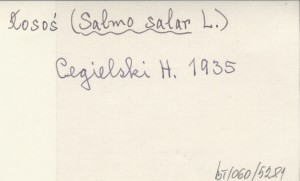 Łosoś (Salmo salar L.)
Cegielski H. 1935
bT/060/5281